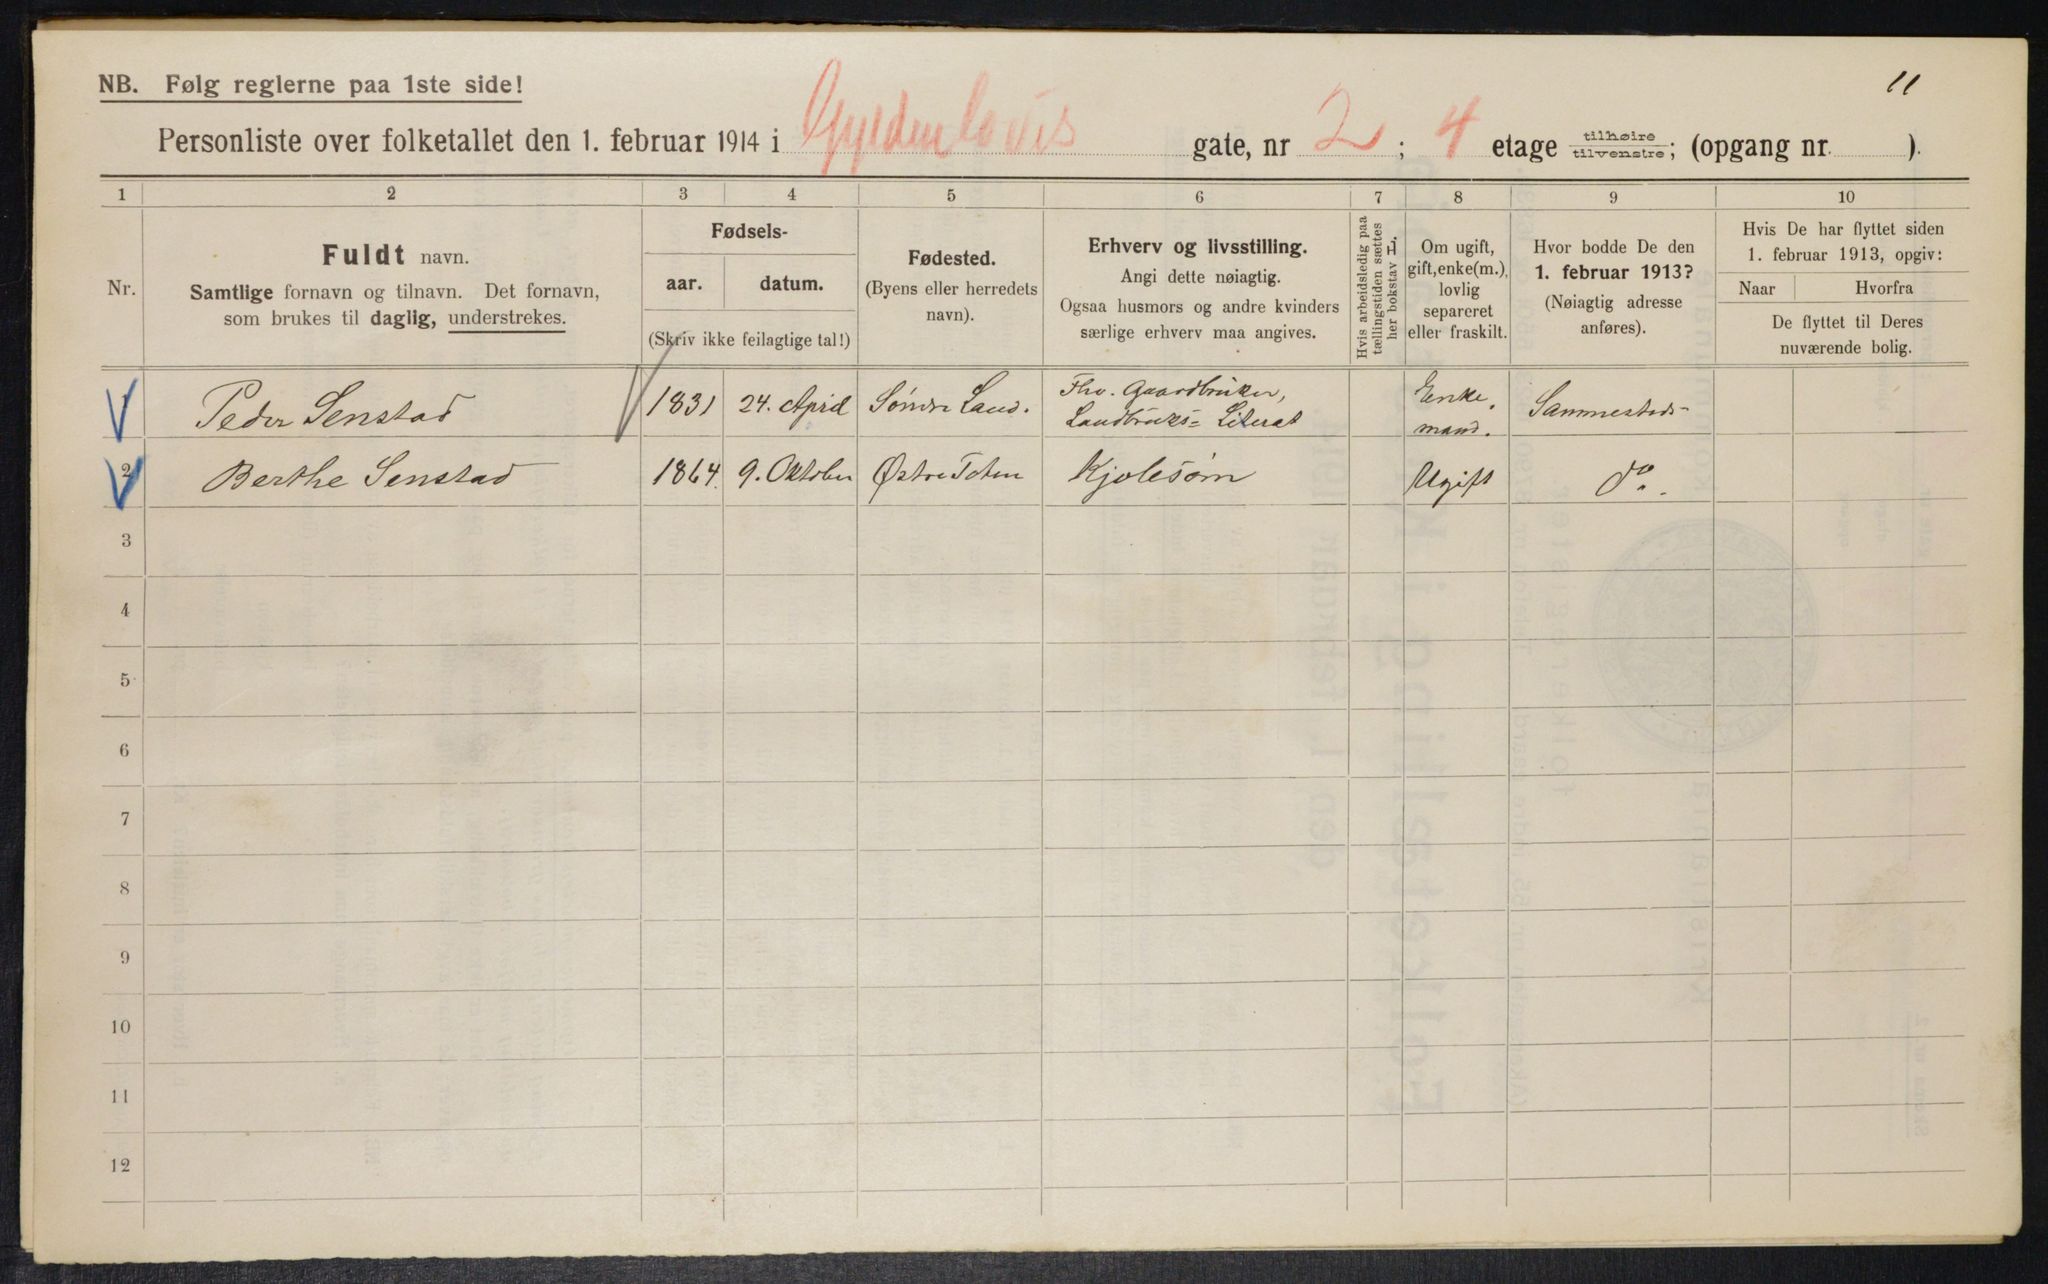 11
NB. Følg reglerne paa 1ste side!
Personliste over folketallet den 1. februar 1914 i Gyldenløves gate, nr 2 ; 4 etage tilhøire tilvenstre; (opgang nr. ).
1 2 3 4 5 6 7 8 9 10
Nr.
Fuldt navn.
Samtlige fornavn og tilnavn. Det fornavn,
som brukes til daglig, understrekes.
Fødsels-
aar. datum.
(Skriv ikke feilagtige tal!)
Fødested.
(Byens eller herredets
navn).
Erhverv og livsstilling.
Angi dette nøiagtig.
Ogsaa husmors og andre kvinders
særlige erhverv maa angives.
Hvis arbeidsledig paa
tællingstiden sættes
her bokstav L.
Om ugift,
gift, enke(m.),
lovlig
separeret
eller fraskilt.
Hvor bodde De den
1. februar 1913?
(Nøiagtig adresse
anføres).
Hvis De har flyttet siden
1. februar 1913, opgiv:
Naar Hvorfra
De flyttet til Deres
nuværende bolig.
1 Peder Senstad 1831 24. April Søndre Land. Fhv. Gaardbruker,
Landbruks= Literat Enke,
mand. Sammesteds-
2 Berthe Senstad 1864. 9. Oktober Østre Toten Kjolesøm Ugift do.
3
4
5
6
7
8
9
10
11
12